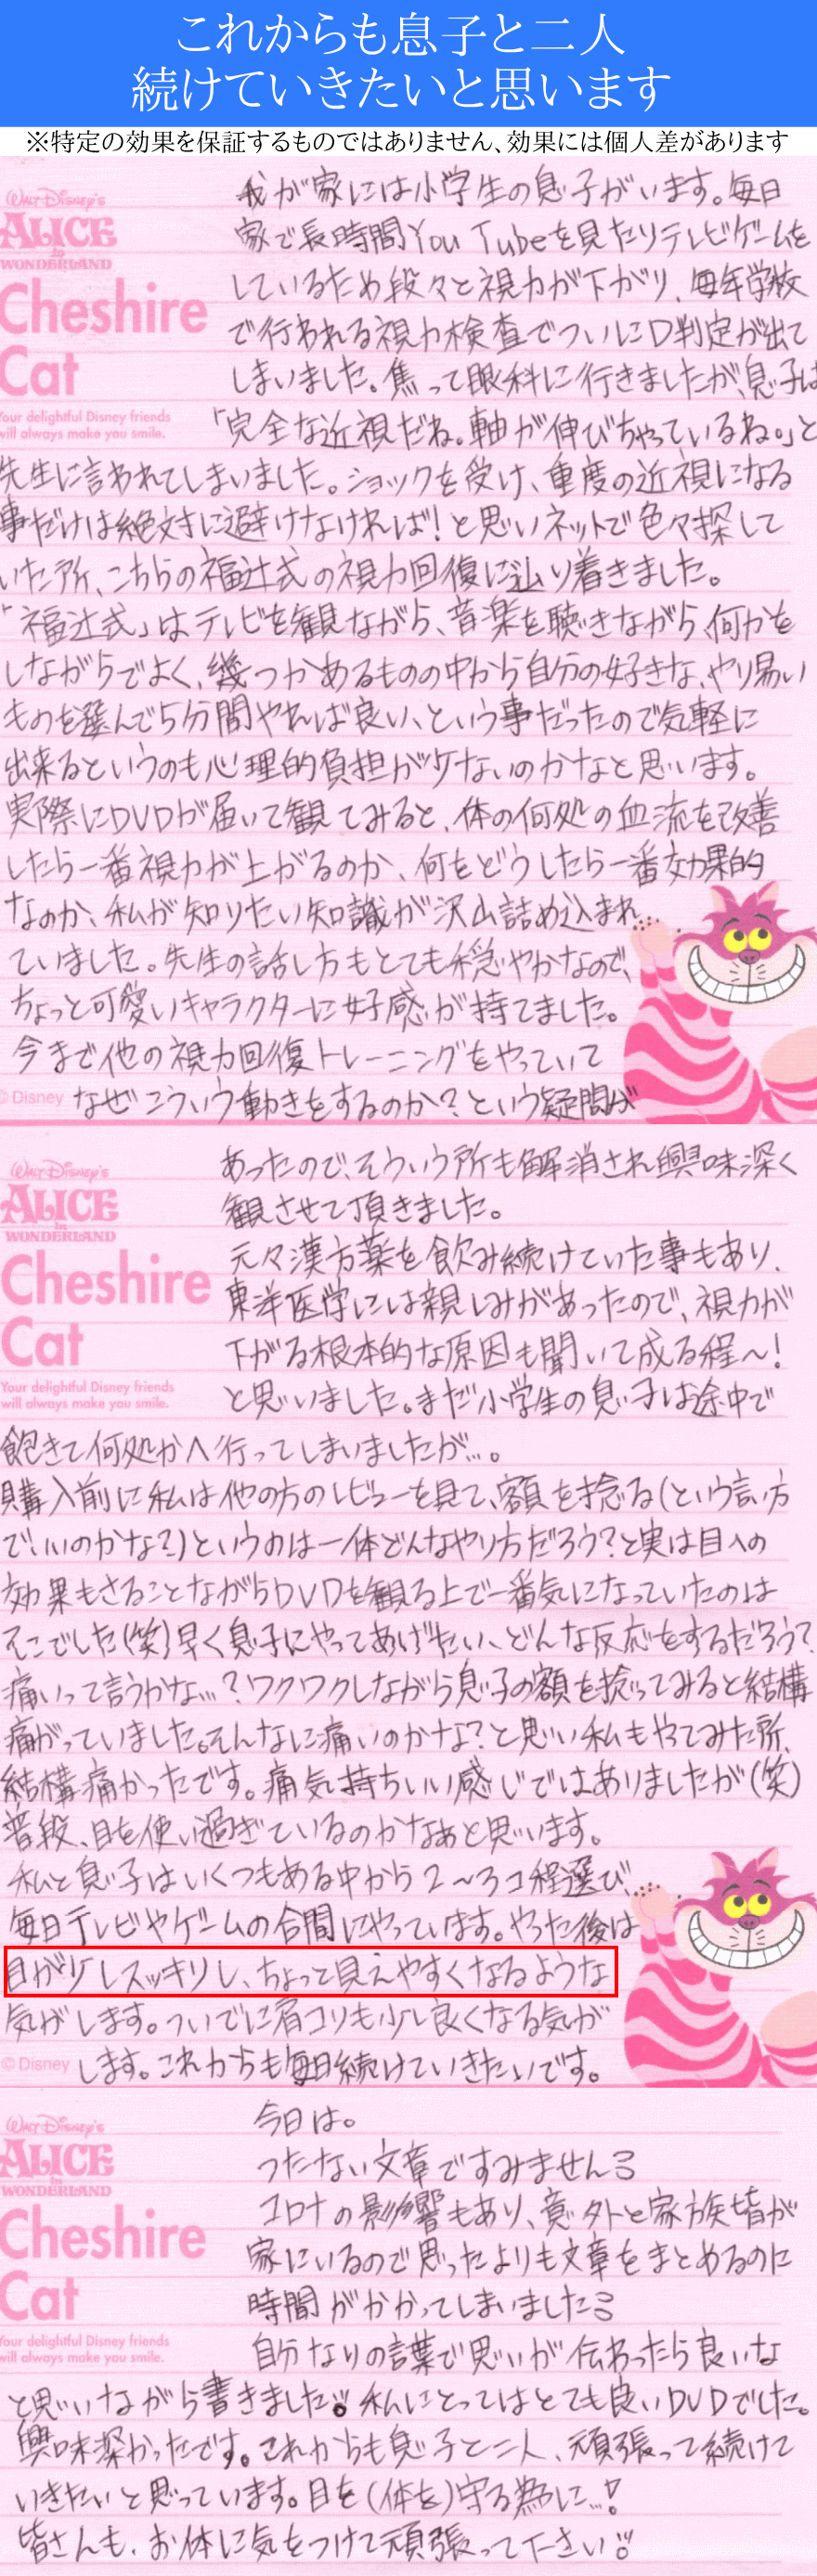 これからも息子と二人
続けていきたいと思います
※特定の効果を保証するものではありません、効果には個人差があります
WALT DISNEY'S
ALICE
in
WONDERLAND
Cheshire
Cat
Your delightful Disney friends
will always make you smile.
我が家には小学生の息子がいます。毎日
家で長時間You Tubeを見たりテレビゲームを
しているため段々と視力が下がり、毎年学校
で行われる視力検査でついにD判定が出て
しまいました。焦って眼科に行きましたが、息子は
「完全な近視だね。軸が伸びちゃっているね。」と
先生に言われてしまいました。ショックを受け、重度の近視になる
事だけは絶対に避けなければ!と思いネットで色々探して
いた所、こちらの福辻式の視力回復に辿り着きました。
「福辻式」はテレビを観ながら、音楽を聴きながら、何かを
しながらでよく、幾つかあるものの中から自分の好きな、やり易い
ものを選んで5分間やれば良い、という事だったので気軽に
出来るというのも心理的負担が少ないのかなと思います。
実際にDVDが届いて観てみると、体の何処の血流を改善
したら一番視力が上がるのか、何をどうしたら一番効果的
なのか、私が知りたい知識が沢山詰め込まれ
ていました。先生の話し方もとても穏やかなので、
ちょっと可愛いキャラクターに好感が持てました。
今まで他の視力回復トレーニングをやっていて
なぜこういう動きをするのか?という疑問が
© Disney
WALT DISNEY'S
ALICE
in
WONDERLAND
Cheshire
Cat
Your delightful Disney friends
will always make you smile.
あったので、そういう所も解消され興味深く
観させて頂きました。
元々漢方薬を飲み続けていた事もあり、
東洋医学には親しみがあったので、視力が
下がる根本的な原因も聞いて成る程〜!
と思いました。まだ小学生の息子は途中で
飽きて何処かへ行ってしまいましたが…。
購入前に私は他の方のレビューを見て、額を捻る(という言い方
で、いいのかな?)というのは一体どんなやり方だろう?と実は目への
効果もさることながらDVDを観る上で一番気になっていたのは
そこでした(笑)早く息子にやってあげたい、どんな反応をするだろう?
痛いって言うかな…?ワクワクしながら息子の額を捻ってみると結構
痛がっていました。そんなに痛いのかな?と思い私もやってみた所、
結構痛かったです。痛気持ちいい感じではありましたが(笑)
普段、目を使い過ぎているのかなぁと思います。
私と息子はいくつもある中から2〜3コ程選び、
毎日テレビやゲームの合間にやっています。やった後は
目が少しスッキリし、ちょっと見えやすくなるような
気がします。ついでに肩コリも少し良くなる気が
します。これからも毎日続けていきたいです。
© Disney
WALT DISNEY'S
ALICE
in
WONDERLAND
Cheshire
Cat
Your delightful Disney friends
will always make you smile.
今日は。
つたない文章ですみません
コロナの影響もあり、意外と家族皆が
家にいるので思ったよりも文章をまとめるのに
時間がかかってしまいました
自分なりの言葉で思いが伝わったら良いな
と思いながら書きました!。私にとってはとても良いDVDでした。
興味深かったです。これからも息子と二人、頑張って続けて
いきたいと思っています。目を(体を)守る為に…!
皆さんも、お体に気をつけて頑張って下さい!